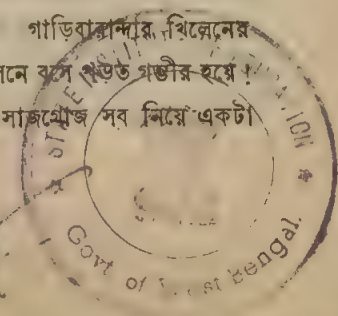 গাড়িবারান্দার খিলেনের
নে বসে পড়ত গম্ভীর হয়ে।
সাজগোজ সব নিয়ে একটা
Govt of West Bengal